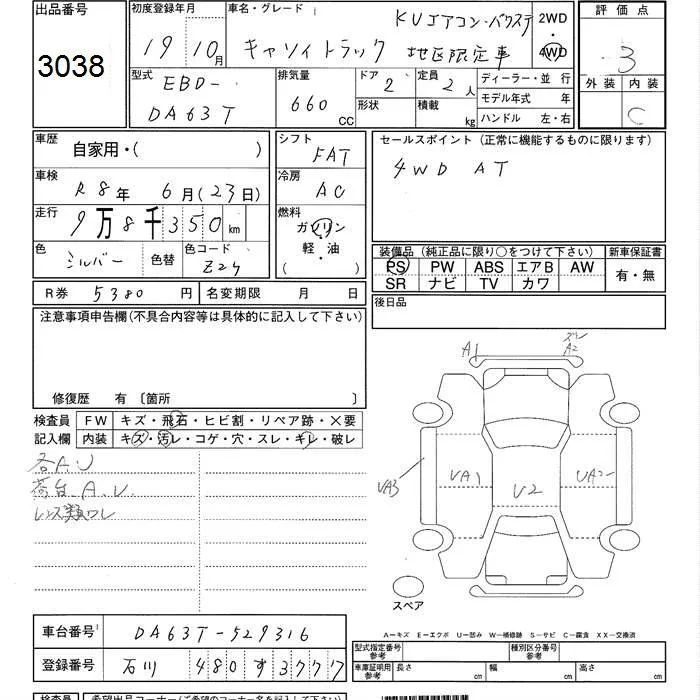 出品番号
3038
初度登録年月
19 10月
車名・グレード
キャリイトラック
KUエアコン・パワステ
地区限定車
2WD
4WD
評価点
3
外装 内装
C
型式
EBD-
DA63T
排気量
660
CC
ドア 2
形状
定員 2 人
積載 kg
ディーラー・並行
モデル年式 年
ハンドル 左・右
車歴
自家用・( )
シフト
FAT
セールスポイント (正常に機能するものに限ります)
4WD AT
車検
R8年 6月(23日)
冷房
AC
走行
9万8千350km
燃料
ガソリン
軽・油
( )
色
シルバー
色替
色コード
Z2Y
装備品 (純正品に限り○をつけて下さい)
PS PW ABS エアB AW
SR ナビ TV カワ
新車保証書
有・無
R券 5380 円
名変期限 月 日
後日品
注意事項申告欄(不具合内容等は具体的に記入して下さい)
修復歴 有 〔箇所 〕
検査員
記入欄
FW キズ・飛石・ヒビ割・リペア跡・×要
内装 キズ・汚レ・コゲ・穴・スレ・キレ・破レ
各A.U
荷台A.U.
レンズ類ワレ
A1
A2
UA3
UA1
U2
UA2
スペア
A-キズ E-エクボ U-凹み W-補修跡 S-サビ C-腐食 XX-交換済
車台番号 DA63T-529316
登録番号 石川 480 す 3777
型式指定番号
参考
種別区分番号
参考
車庫証明用
参考
長さ cm
幅 cm
高さ cm
検査員
希望出品コーナー(ご希望のコーナー名を記入して下さい)